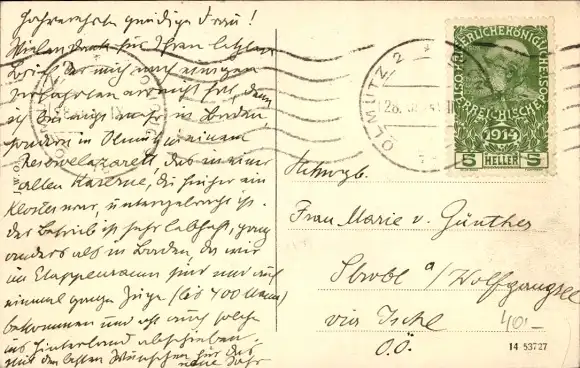 Hochverehrte gnädige Frau!
Vielen Dank für Ihren letzten
Brief der mich nach einigen
Irrfahrten erreicht hat, denn
ich bin nicht mehr in
sondern in Olmütz in einem
Reservelazarett das in einer
alten Kaserne, die früher ein
Kloster war, untergebracht ist.
Der Betrieb ist sehr lebhaft, ganz
anders als in, da wir
im Etappenraum sind und auf
einmal ganze Züge (bis 400 Mann)
bekommen und oft auch solche
ins Hinterland abschieben.
Mit den besten Wünschen für das
neue Jahr
OLMÜTZ 2
ÖSTERREICHISCHE
1914
5 HELLER 5
Hochwgb.
Frau Marie v. Günther
Strobl a/Wolfgangsee
via Ischl
O.Ö.
40.-
14 53727